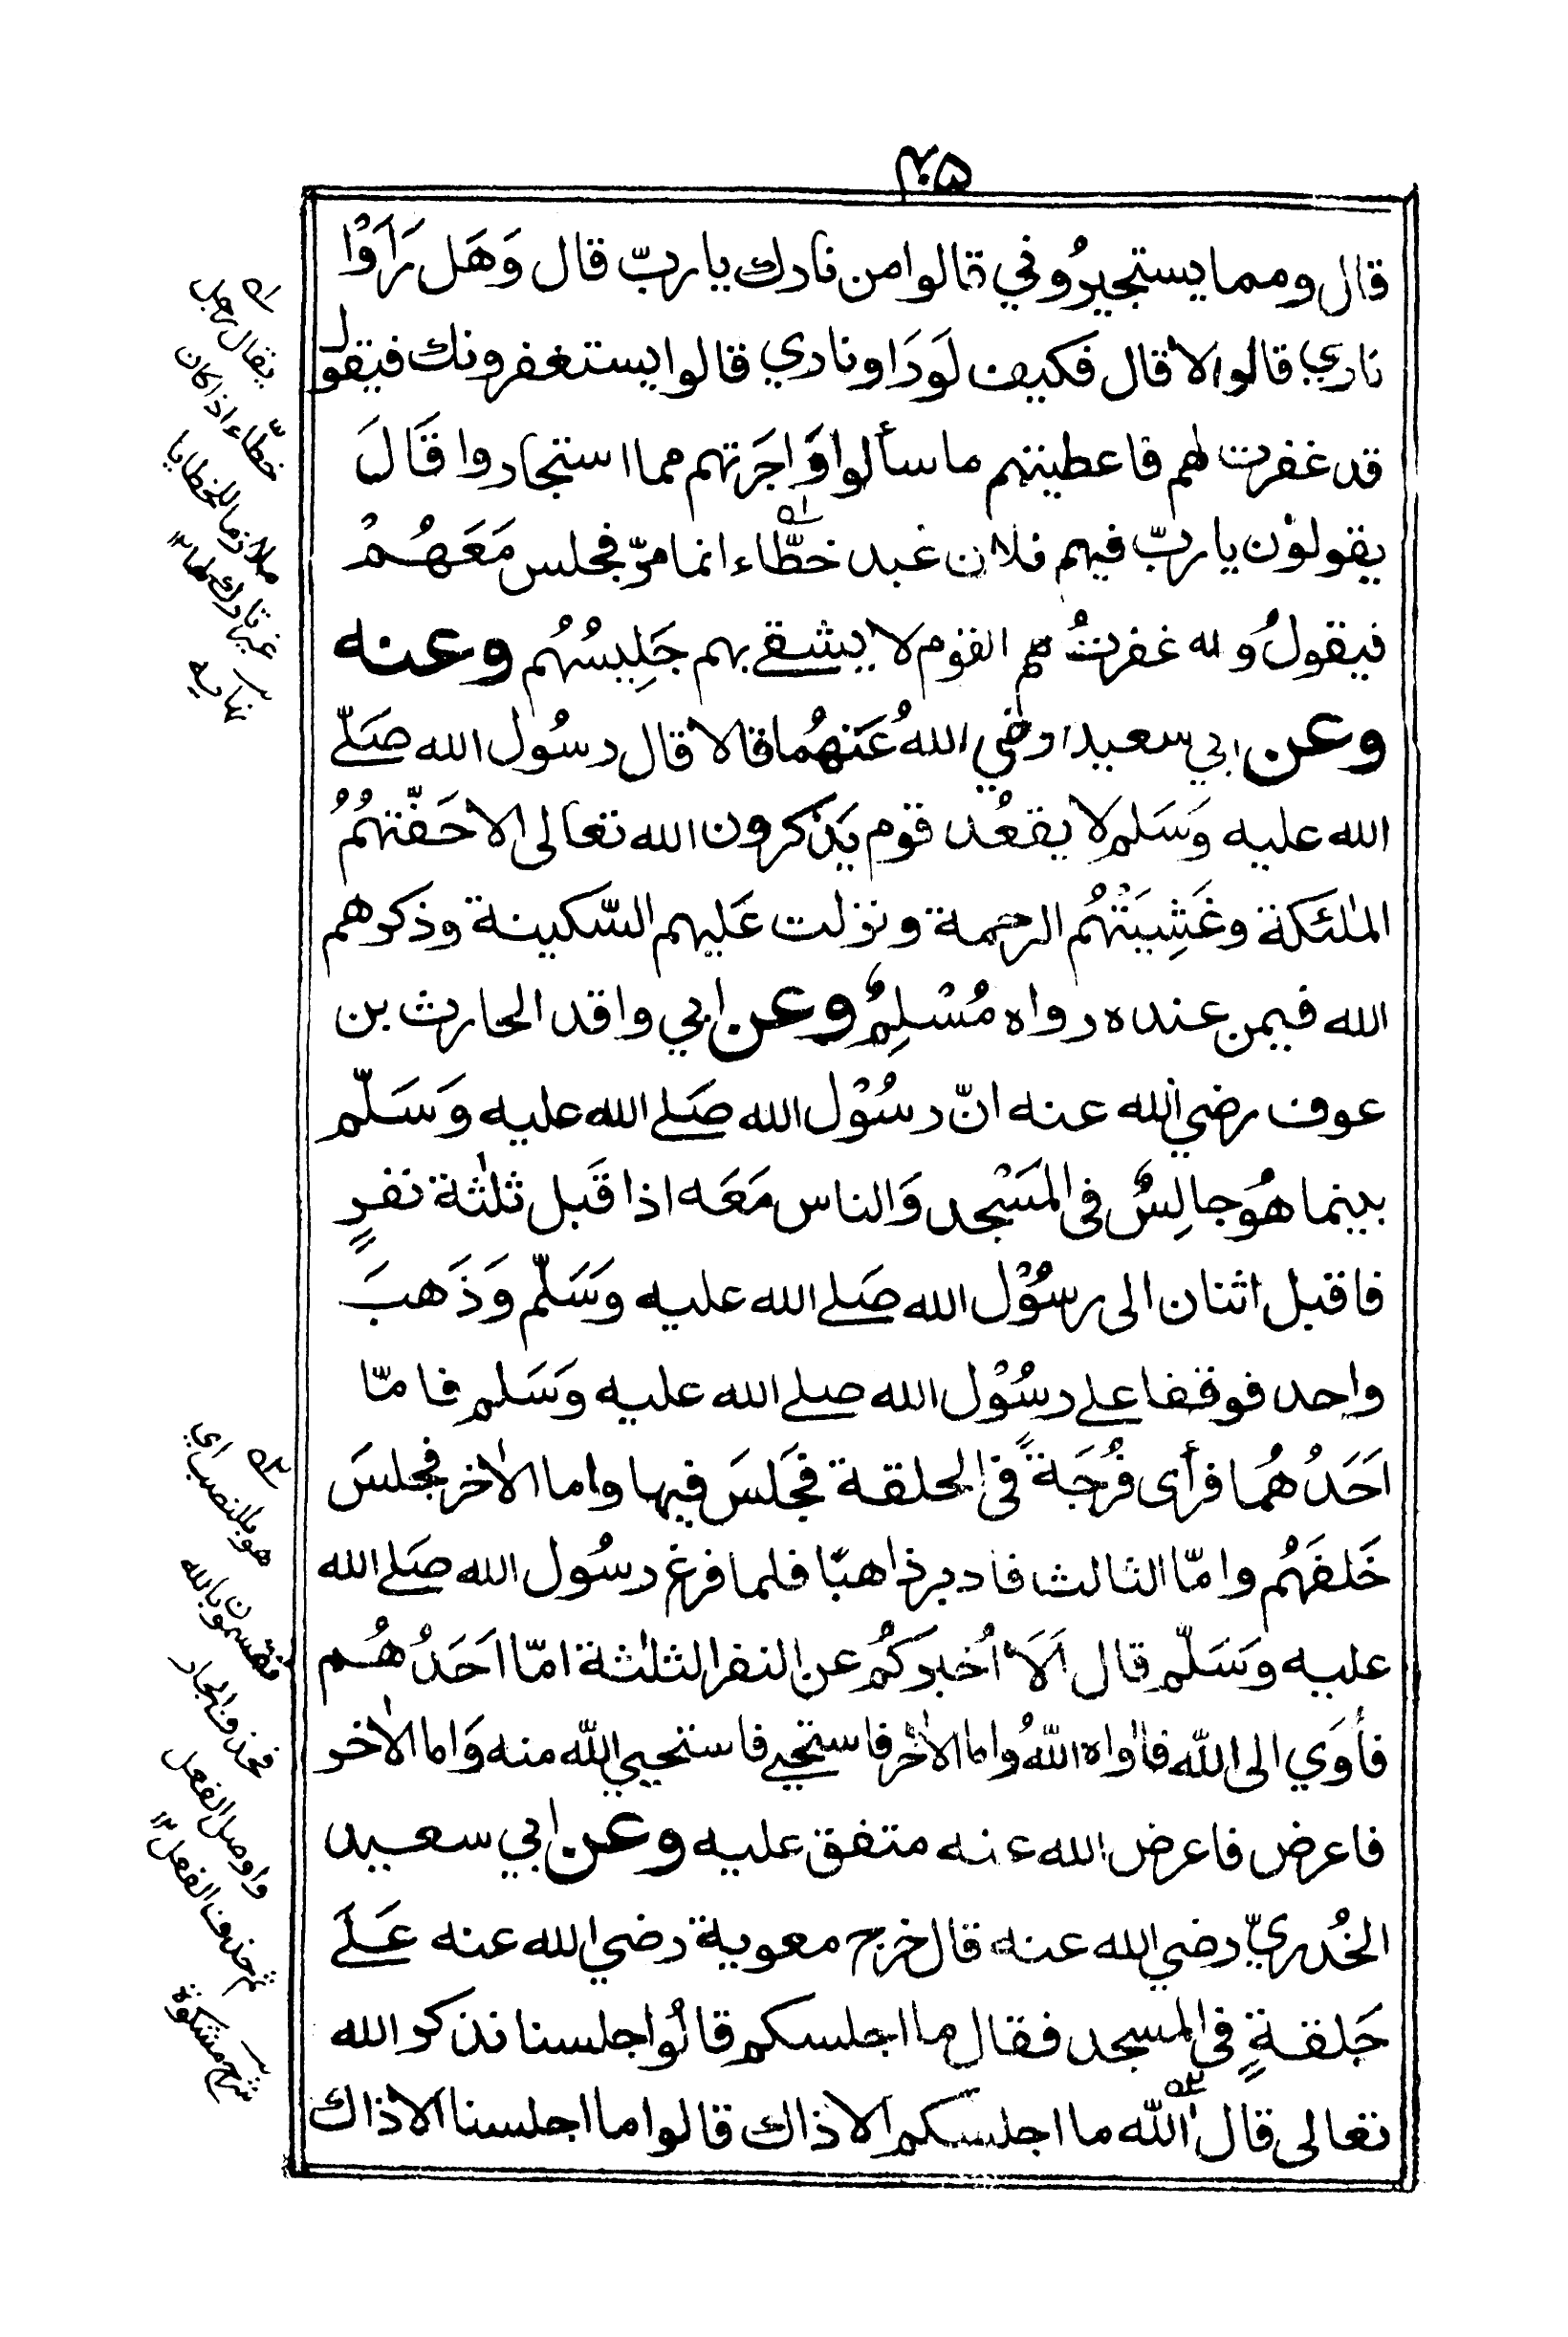 ٢٠٥
قال ومما يستجيرُوني قالوا من نارك يا ربّ قال وَهَل رَاَوْا
نَاري قالوا لا قال فكيف لَو رَاَوا ناري قالوا يستغفرونك فيقول
قد غفرت لهم فاعطيتهم ما سألوا وَاجَرتهم مما استجاروا قَالَ
يقولوْن يا ربّ فيهم فلان عبد خطّاء انما مرّ فجلس مَعَهُمْ
فيقولُ وله غفرتُ هم القوم لا يشقے بهم جَلِيسُهُم وعنه
وعن ابي سعيد رضي اللهُ عَنهُما قالا قال رسُول الله صَلّے
الله عليه وَسَلم لا يقعُد قوم يَذكرون الله تعالى الا حَفّتهُمُ
الملٰئكة وغَشِيَتْهُم الرحمة ونزلت عَليهم السّكينة وذكرهم
الله فيمن عنده رواه مُسْلِمٌ وعن ابي واقد الحارث بن
عوف رضي الله عنه انّ رسُوْل الله صَلے الله عليه وَسَلّم
بينما هُو جالِسٌ فى المَسْجد وَالناس مَعَه اذا قَبل ثلٰثة نفرٍ
فاقبل اثنان الى رسُوْل الله صَلے الله عليه وَسَلّم وَذَهبَ
واحد فوقفا علے رسُوْل الله صلے الله عليه وَسَلم فامّا
اَحَدُهُما فرأى فُرُجَةً فى الحلقة فجَلسَ فيها واما الاٰخر فجلسَ
خَلفَهُم وامّا الثالث فادبر ذاهبًا فلما فرغ رسُول الله صَلے الله
عليه وَسَلّم قال اَلَا اُخبركُم عن النفر الثلٰثة امّا اَحَدُهُم
فأوَي الى اللّه فاٰواه اللّهُ واما الاٰخَر فاستحيے فاستحيي اللّه منه وَاما الاٰخر
فاعرض فاعرض الله عنه متفق عليه وعن ابي سعيد
الخُدريّ رضي الله عنه قال خرج معوية رضي الله عنه عَلَے
حَلقةٍ فى المسجد فقال ما اجلسكم قالُوا جلسنا نذكر الله
تعالى قال اٰللّٰه ما اجلسكم الا ذاك قالوا ما اجلسنا الا ذاك
يقال رجل
خطّاء اذا كان
ملازما للخطايا
غير تارك لها ١٢
نهاية
هو بالنصب اي
تقسمون بالله
فحذف الجار
واوصل الفعل
ثم حذف الفعل ١٢
شرح مشكوة